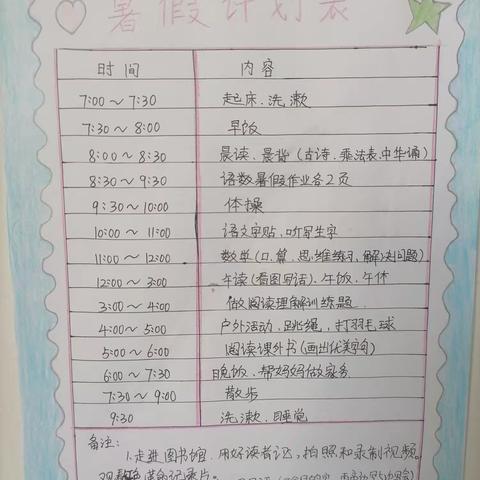 暑假计划表
时间 内容
7:00～7:30 起床.洗漱
7:30～8:00 早饭
8:00～8:30 晨读.晨背(古诗、乘法表.中华诵)
8:30～9:30 语数暑假作业各2页
9:30～10:00 体操
10:00～11:00 语文字贴,听写生字
11:00～12:00 数学(口算.思维练习,解决问题)
12:00～3:00 午读(看图写话).午饭.午休
3:00～4:00 做阅读理解训练题
4:00～5:00 户外活动,跳绳,打羽毛球
5:00～6:00 阅读课外书(画出优美字句)
6:00～7:30 晚饭.帮妈妈做家务
7:30～9:00 散步
9:30 洗漱.睡觉
备注:
1.走进图书馆.用好读者证,拍照和录制视频.